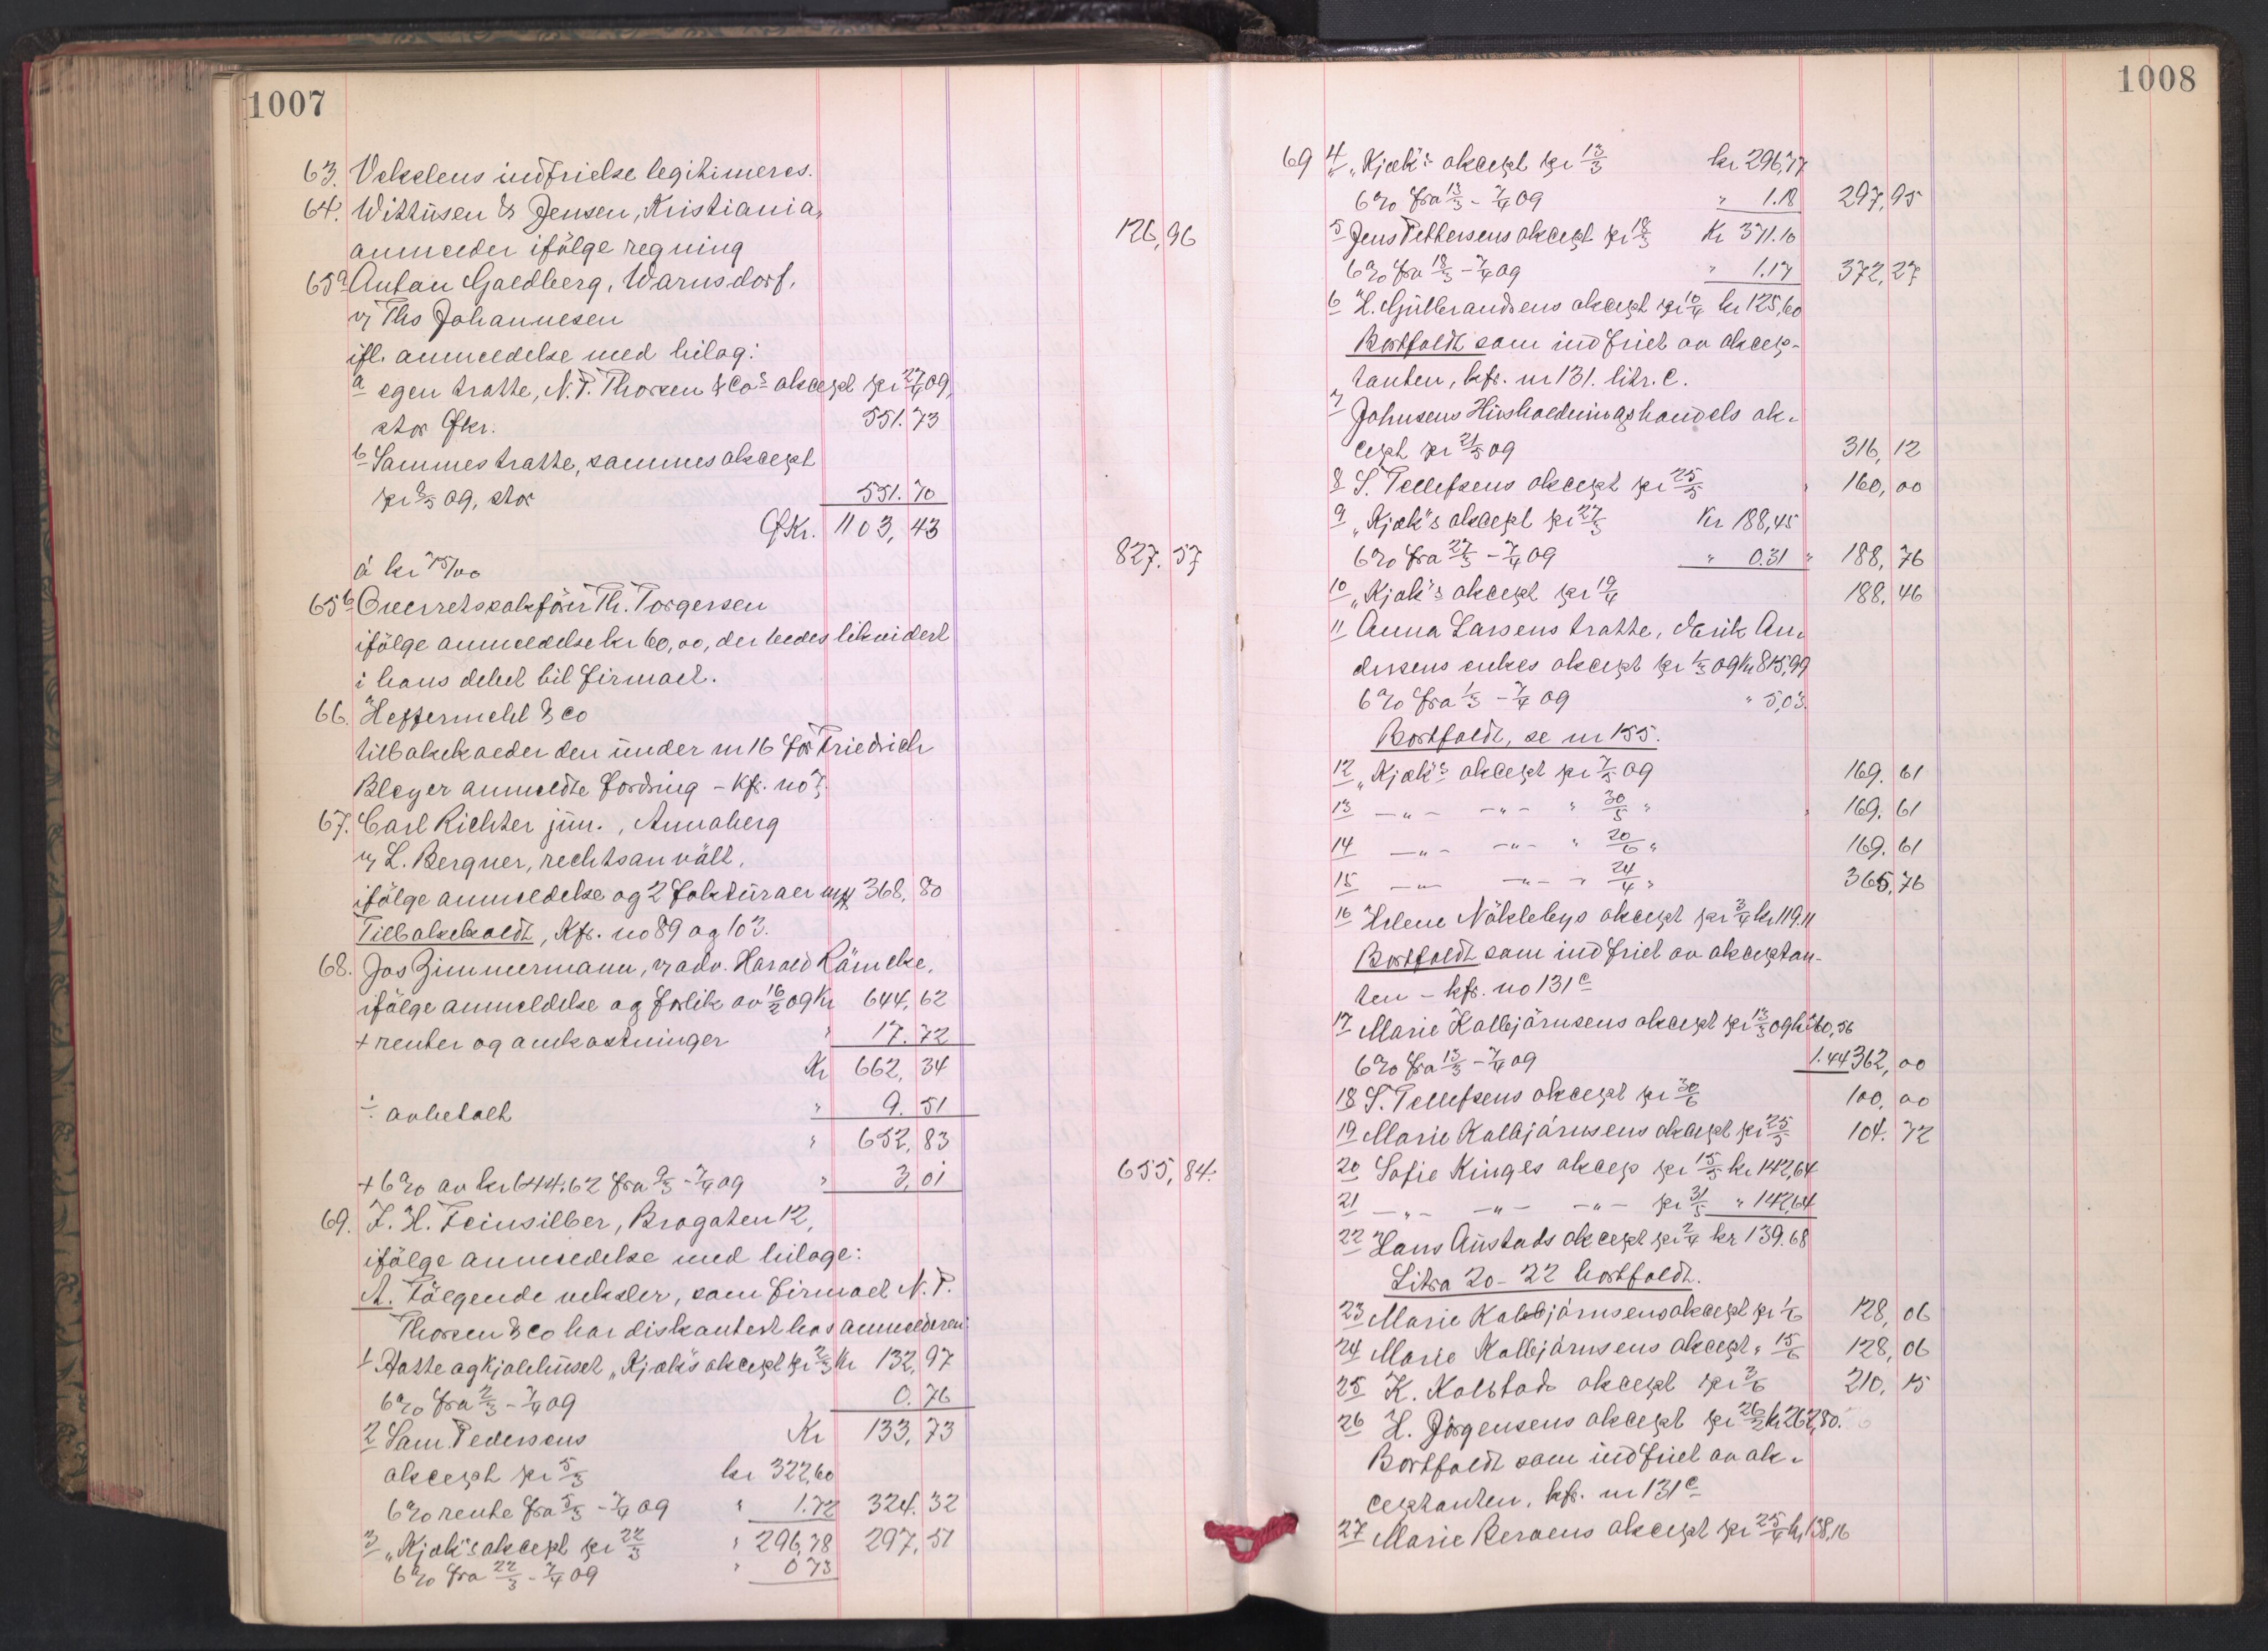 1007
63. Vekslens indfrielse legitimeres.
64. Wittusen & Jensen, Kristiania,
anmelder ifölge regning 126,96
65a Anton Goldberg, Warnsdorf,
v/ Ths Johannesen
ifl. anmeldelse med bilag:
a egen tratte, N.T. Thorsen & Co's aksept pr 27/4 09,
stor Ökr. 551.73
b Sammes tratte, sammes aksept
pr 8/5 09, stor 551.70
ÖKr. 1103,43
á kr 75/00 827.57
65b Overretssakförer Th. Torgersen
ifölge anmeldelse kr 60,00, der bedes likvidert
i hans debet til firmaet.
66. Heffermehl & Co
tilbakekalder den under nr 16 for Friedrich
Bleyer anmeldte fordring - Kfr. no 7.
67. Carl Richter jun., Annaberg
v/ L. Bergner, rechtsanvált,
ifölge anmeldelse og 2 fakturaer 368,80
Tilbakekaldt, Kfr. no 89 og 103.
68. Jos Zimmermann, v/ adv. Harald Rämcke,
ifölge anmeldelse og forlik av 16/2 09 Kr 644,62
+ renter og omkostninger " 17.72
Kr 662,34
÷ avbetalt " 9.51
" 652,83
+ 6% av kr 644.62 fra 9/3 - 7/4 09 " 3,01 655,84.
69. J. H. Feinsilber, Bragaten 12,
ifölge anmeldelse med bilage:
A. Fölgende veksler, som firmaet N.T.
Thorsen & Co har diskontert hos anmelderen:
1 Hatte og kjolehuset „Kjæk"s aksept pr 2/3 Kr 132,97
6% fra 2/3 - 7/4 09 0.76
2 Sam. Pedersens Kr 133,73
aksept pr 5/3 kr 322,60
6% rente fra 5/3 - 7/4 09 " 1.72 324.32
3 „Kjæk"s aksept pr 22/3 " 296,78 297,51
6% fra 22/3 - 7/4 09 " 0 73
1008
69 4 „Kjæk"s aksept pr 13/3 kr 296,77
6% fra 13/3 - 7/4 09 " 1.18 297,95
5 Jens Pettersens aksept pr 18/3 Kr 371.10
6% fra 18/3 - 7/4 09 " 1.17 372,27
6 H. Gulbrandsens aksept pr 10/4 kr 125,60
Bortfaldt som indfriet av aksep-
tanten, kfr. nr 131. litr. C.
7 Johnsens Husholdningshandels ak-
cept pr 21/5 09 316,12
8 S. Tellefsens aksept pr 25/5 " 160,00
9 „Kjæk"s aksept pr 27/3 Kr 188,45
6% fra 27/3 - 7/4 09 " 0.31 " 188,76
10 „Kjæk"s aksept pr 19/4 188.46
11 Anna Larsens tratte, Erik An-
dersens enkes aksept pr 1/3 09 Kr 815,99
6% fra 1/3 - 7/4 09 " 5,03.
Bortfaldt, se nr 155.
12 „Kjæk"s aksept pr 7/5 09 169.61
13 -"- -"- " 30/5 " " 169.61
14 -"- -"- " 20/6 " 169.61
15 -"- -"- " 24/4 " 365,76
16 Helene Näklebys aksept pr 3/4 kr 119.11
Bortfaldt som indfriet av akseptan-
ten - kfr. no 131c
17 Marie Kolbjörnsens aksept pr 13/3 09 kr 360,56
6% fra 13/3 - 7/4 09 1.44 362,00
18 S. Tellefsens aksept pr 30/6 100,00
19 Marie Kolbjörnsens aksept pr 25/5 104.72
20 Sofie Kinges aksep pr 15/5 kr 142,64
21 -"- -"- -"- pr 31/5 " 142,64
22 Hans Austads aksept pr 2/4 kr 139.68
Litra 20-22 bortfaldt.
23 Marie Kolbjörnsens aksept pr 1/6 128,06
24 Marie Kolbjörnsens aksept " 15/6 128,06
25 K. Kolstads aksept pr 2/6 210,15
26 H. Jörgensens aksept pr 26/2 kr 262,80.
Bortfaldt som indfriet av ak-
ceptanten, kfr. nr 131c
27 Marie Beraens aksept pr 25/4 kr 138,16